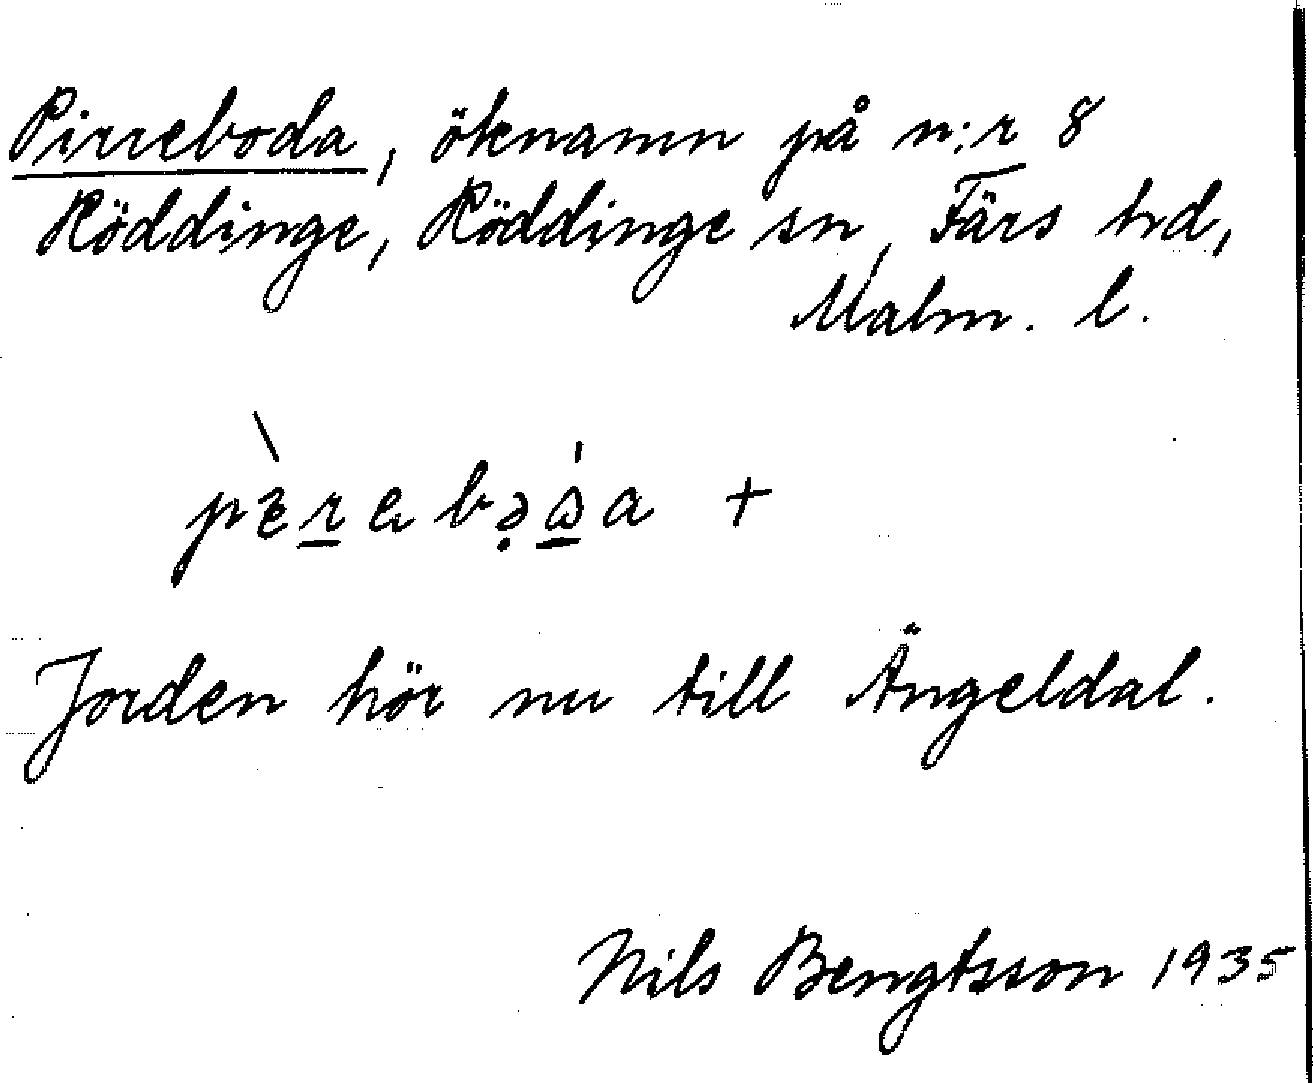 Pirreboda, öknamn på n:r 8
Röddinge, Röddinge sn, Färs hd,
Malm. l.
Jorden hör nu till Ängeldal.
Nils Bengtsson 1935